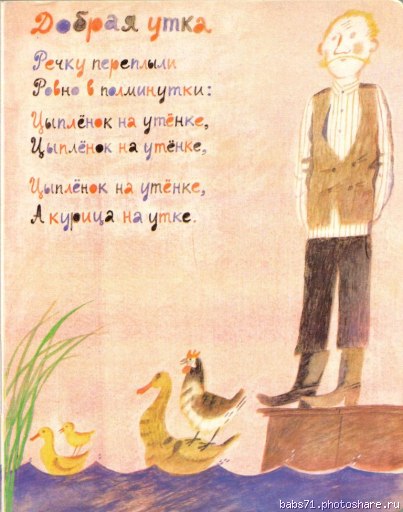 Добрая утка
Речку переплыли
Ровно в полминутки:
Цыплёнок на утёнке,
Цыплёнок на утёнке,
Цыплёнок на утёнке,
А курица на утке.
babs71.photoshare.ru